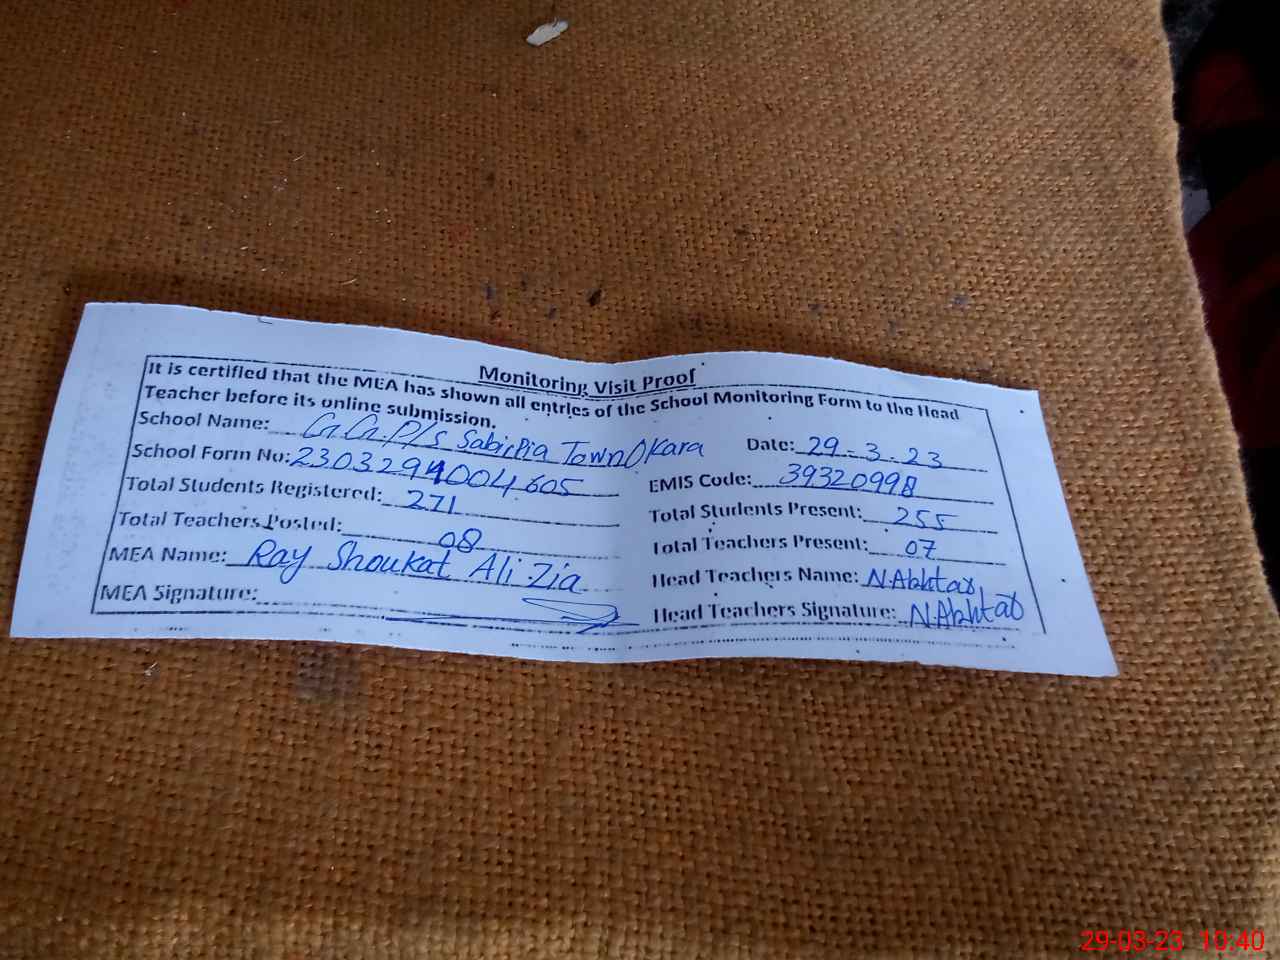 Monitoring Visit Proof
It is certified that the MEA has shown all entries of the School Monitoring Form to the Head
Teacher before its online submission.
School Name: G.G.P/s Sabir Pia Town Okara Date: 29-3-23
School Form No: 2303294004605 EMIS Code: 39320998
Total Students Registered: 271 Total Students Present: 255
Total Teachers Posted: 08 Total Teachers Present: 07
MEA Name: Ray Shoukat Ali Zia Head Teachers Name: N.Akhtar
MEA Signature: Head Teachers Signature: N.Akhtar
29-03-23 10:40